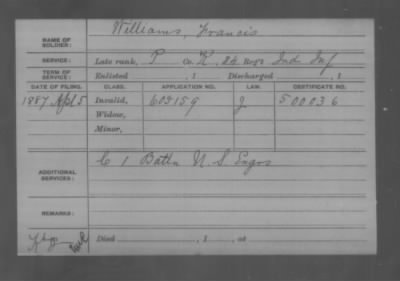 NAME OF SOLDIER: Williams, Francis
SERVICE: Late rank, P Co. K, 24 Reg't Ind Inf
TERM OF SERVICE: Enlisted , 1 Discharged , 1
DATE OF FILING. CLASS. APPLICATION NO. LAW. CERTIFICATE NO.
1887 Apl 5 Invalid, 603159 J 500036
Widow,
Minor,
ADDITIONAL SERVICES: C 1 Battn U. S. Engrs
REMARKS:
Died , 1 , at